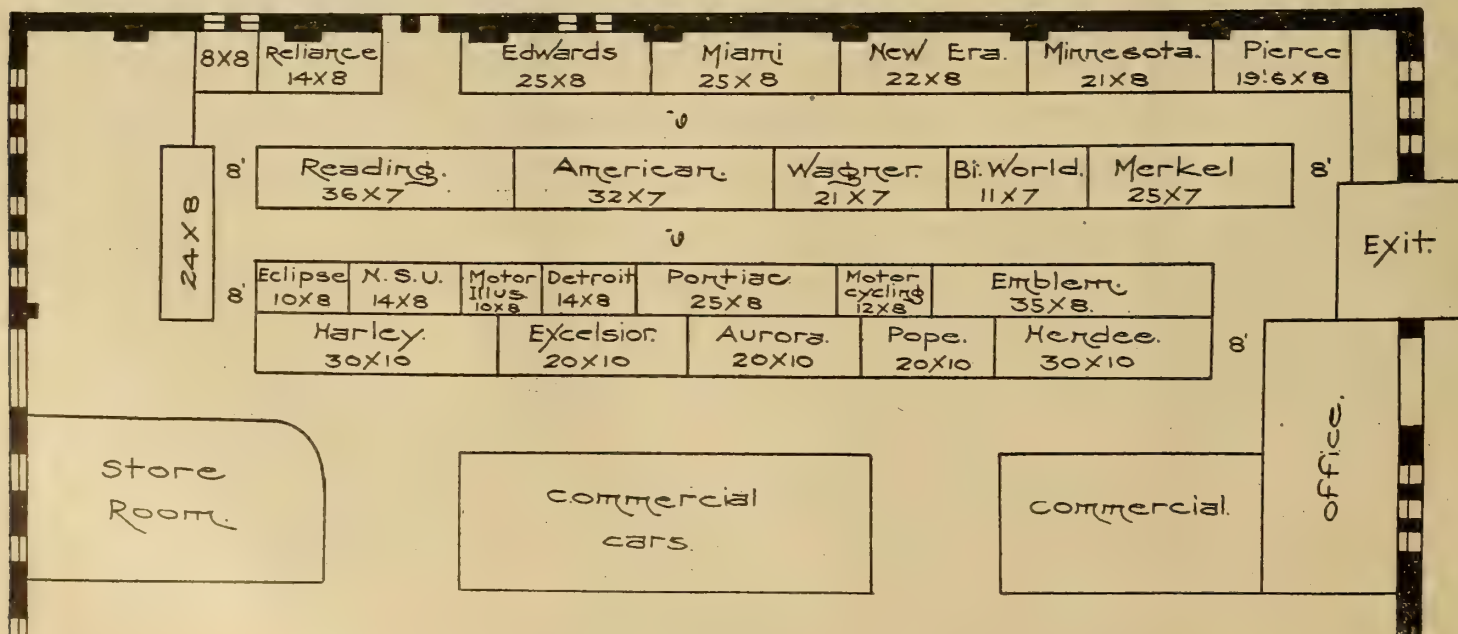 8X8
Reliance
14X8
Edwards
25X8
Miami
25X8
New Era.
22X8
Minnesota.
21X8
Pierce
19'6X8
8'
Reading.
36X7
American.
32X7
Wagner.
21X7
Bi. World.
11X7
Merkel
25X7
8'
Exit.
24X8
8'
Eclipse
10X8
N.S.U.
14X8
Motor
Illus.
10X8
Detroit
14X8
Pontiac
25X8
Motor
cycling
12X8
Emblem.
35X8.
Harley.
30X10
Excelsior.
20X10
Aurora.
20X10
Pope.
20X10
Hendee.
30X10
8'
Store
Room.
Commercial
cars.
Commercial.
Office.